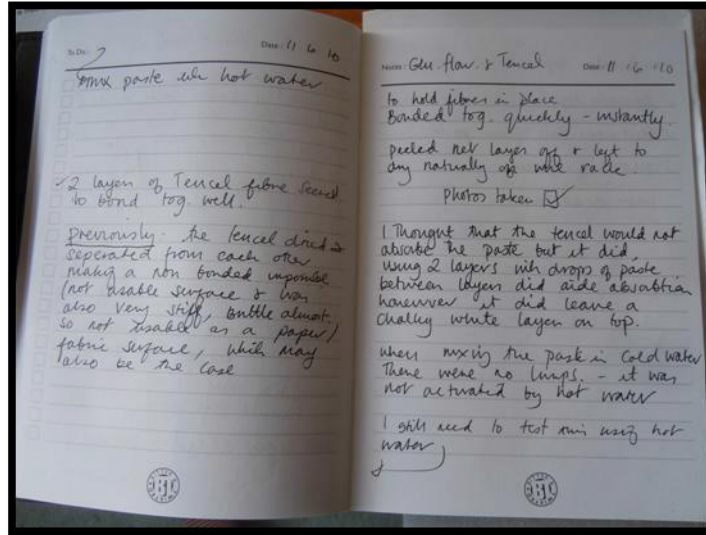 To Do: ?
Date: 11 6 10
mix paste with hot water
✓ 2 layers of Tencel fibre seemed
to bond tog. well.
Previously the tencel dried &
seperated from each other
making a non bonded
(not usable surface & was
also very stiff, brittle almost.
so not usable as a paper/
fabric surface, which may
also be the case
Notes: Glu. flour. & Tencel Date: 11 6 10
to hold fibres in place
Bonded tog. quickly - instantly.
peeled net layer off & left to
dry naturally on wire rack.
photos taken ☑
I Thought that the tencel would not
absorbe the paste but it did,
using 2 layers with drops of paste
between layers did aide absorbtion
however it did leave a
chalky white layer on top.
when mixing the paste in cold water
There were no lumps. - it was
not activated by hot water
I still need to test this using hot
water